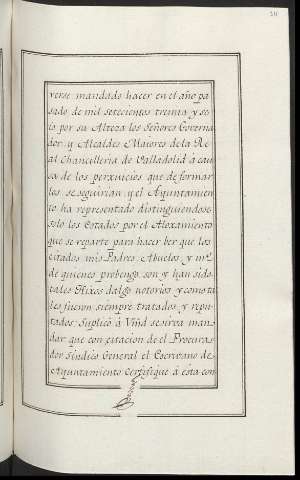 verse mandado hacer en el año pa
sado de mil setecientos treinta y se
is por su Alteza los Señores Governa
dor y Alcaldes Maiores de la Re
al Chancilleria de Valladolid à cau
sa de los perxuicios que de formar
los se seguirian y el Ayuntamien
to ha representado distinguiendose
solo los Estados por el Aloxamiento
que se reparte para hacer ber que los
citados mis Padres Abuelos y mas
de quienes probengo son y han sido
tales Hixos dalgo notorios y como ta
les fueron siempre tratados y repu
tados Suplicó à Vmd se sirva man
dar que con citacion de el Procura
dor Sindico General el Escrivano de
Ayuntamiento Certifique à esta con